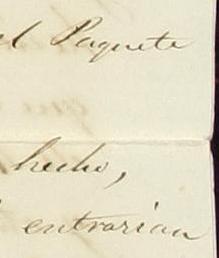 el Paquete
hecho,
entrarian